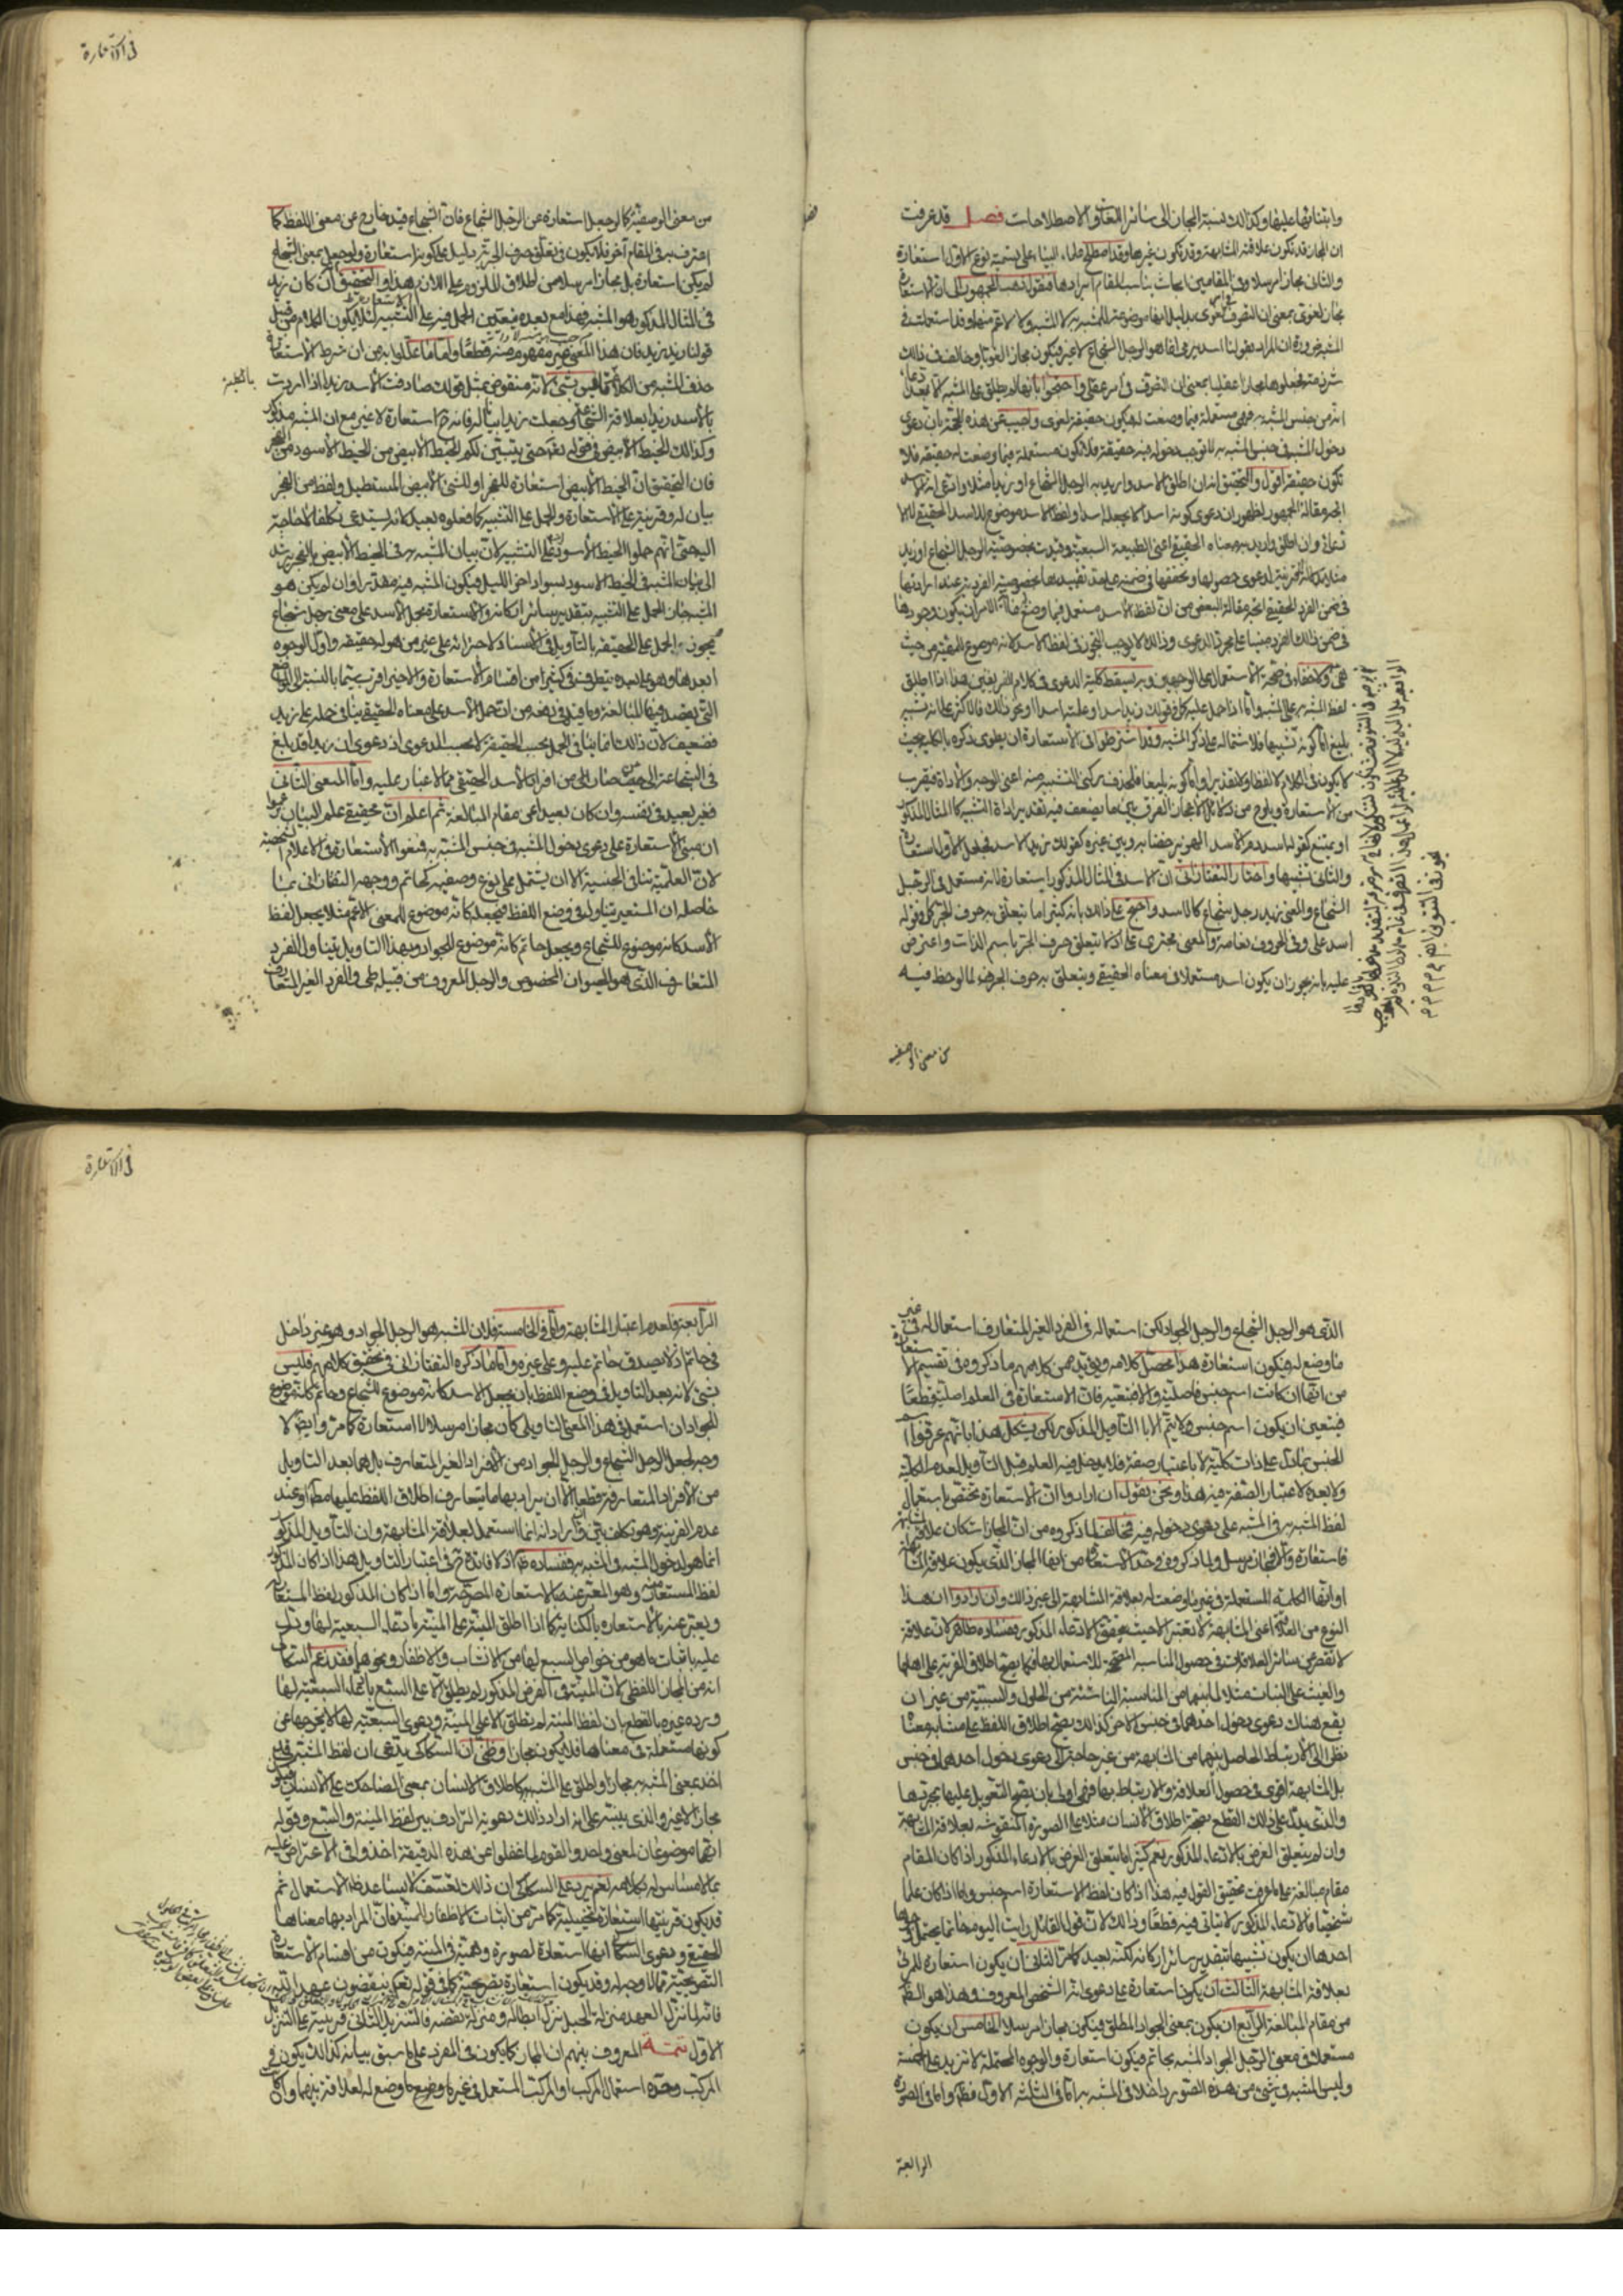 وابتنائها عليها وكذلك نسبة المجاز الى سائر اللغات والاصطلاحات فصل قد عرفت
ان المجاز قد تكون علاقته المشابهة وقد تكون غيرها وقد اصطلح علماء البيان على تسمية نوع الاول استعارة
والثاني مجازا مرسلا وفي المقامين ابحاث يناسب المقام ايرادها فنقول ذهب الجمهور الى ان الاستعارة
مجاز لغوي بمعنى ان التصرف في امر لغوي بدليل انها موضوعة للمشبه به لا للمشبه ولا لاعم منهما وقد استعملت في
المشبه ضرورة ان المراد بقولنا اسد يرمى انما هو الرجل الشجاع لا غير فيكون مجازا لغويا وخالف في ذلك
شرذمة فجعلوها مجازا عقليا بمعنى ان التصرف في امر عقلي واحتجوا بانها لم يطلق على المشبه الا بعد ادعاء
انه من جنس المشبه به فهي مستعملة فيما وضعت له فيكون حقيقة لغوى واجيب عن هذه الحجة بان دعوى
دخول المشبه في جنس المشبه به لا توجب دخوله فيه حقيقة فلا تكون مستعملة فيما وضعت له حقيقة فلا
تكون حقيقة اقول والتحقيق انه ان اطلق الاسد واريد به الرجل الشجاع او زيد مثلا وادعى انه اسد
اتجه مقالة الجمهور لظهور ان دعوى كونه اسدا لا يجعله اسدا ولفظ الاسد موضوع للاسد الحقيقي لا الا
دعائي وان اطلق واريد به معناه الحقيقي اعني الطبيعة السبعية وقيدت بخصوصية الرجل الشجاع او زيد
مثلا بدلالة القرينة لدعوى حصولها وتحققها في ضمنه على حد تقييدها بخصوصية الفرد به عند ارادتها
في ضمن الفرد الحقيقي اتجه مقالة البعض من ان لفظ الاسد مستعمل فيما وضع له غاية الامر ان يكون وجودها
في ضمن ذلك الفرد مبنيا على مجرد الدعوى وذلك لا يوجب التجوز في لفظ الاسد لانه موضوع للطبيعة من حيث
هي ولا خفاء في صحة الاستعمال على الوجهين وبه يسقط كلية الدعوى في كلام الفريقين هذا اذا اطلق
لفظ المشبه به على المشبه واما اذا حمل عليه كما في قولك زيد اسد او علمته اسدا ونحو ذلك فالاكثر على انه تشبيه
بليغ اما كونه تشبيها فلاشتماله على ذكر المشبه وقد اشترطوا في الاستعارة ان يطوى ذكره بالكلية بحيث
لا يكون في الكلام لا لفظا ولا تقديرا واما كونه بليغا فلحذف ركني التشبيه منه اعني الوجه والاداة فيقرب
من الاستعارة ويلوح من دلائل الاعجاز الفرق بين ما يضعف فيه تقدير اداة التشبيه كالمثال المذكور
والثاني تشبيها واختار التفتازاني ان الاسد في المثال المذكور استعارة لانه مستعمل في الرجل
الشجاع والمعنى زيد رجل شجاع كالاسد واحتج على ذلك بانه كثيرا ما يتعلق به حروف الجر كما في قوله
اسد علي وفي الحروب نعامة والمعنى مجترى على اذ لا يتعلق حرف الجر باسم الذات واعترض
عليه بانه يجوز ان يكون اسد مستعملا في معناه الحقيقي ويتعلق به حرف الجر لما لوحظ فيه
من معنى الوصفية
في الاستعارة
من معنى الوصفية كما لو جعل استعارة عن الرجل الشجاع فان الشجاع قيد خارج عن معنى اللفظ كما
اعترف به في المقام آخر فلا يكون في تعلق حرف الجر به دليل على كونه استعارة ولو جعل بمعنى الشجاع
لم يكن استعارة بل مجازا مرسلا من اطلاق الملزوم على اللازم هذا والتحقيق ان كان زيد
في المثال المذكور هو المشبه فهذا مع بعده يتعين الحمل فيه على التشبيه لئلا يكون الكلام من قبيل
قولنا زيد زيد فان هذا المعنى غير مفهوم منه قطعا واما ما عللوا به من ان شرط الاستعارة
حذف المشبه من الكلام فليس بشئ لانه منقوض بمثل قولك صادفت الاسد زيدا اذا اردت
بالاسد زيدا بعلاقة الشجاعة وجعلت زيدا بيانا له فانه ح استعارة لا غير مع ان المشبه مذكور
وكذلك الخيط الابيض في قوله تعالى حتى يتبين لكم الخيط الابيض من الخيط الاسود من الفجر
فان التحقيق ان الخيط الابيض استعارة للفجر او للشئ الابيض المستطيل ولفظ من الفجر
بيان له وقرينة على الاستعارة والحمل على التشبيه كما فعلوه بعيد لانه يستدعى تكلفا لا حاجة
اليه حتى انهم حملوا الخيط الاسود ايضا على التشبيه لان بيان المشبه به في الخيط الابيض بالفجر يرشد
الى بيان المشبه في الخيط الاسود بسواد اخر الليل فيكون المشبه فيه مقدرا وان لم يكن هو
المشبه كان الحمل على التشبيه بتقدير سائر اركانه والاستعارة بحمل الاسد على معنى رجل شجاع
يجوز والحمل على الحقيقة بالتأويل في الاسناد لاجرائه على غير من هو له حقيقة واول الوجوه
ابعدها وهو على بعده يتطرق في كثير من اقسام الاستعارة والاخير اقرب سيما بالنسبة الى المواضع
التي يقصد فيها المبالغة وما قيل في دفعه من ان حمل الاسد على معناه الحقيقي ينافي حمله على زيد
فضعيف لان ذلك انما ينافي الحمل بحسب الحقيقة لا بحسب الدعوى اذ دعوى ان زيدا قد بلغ
في الشجاعة الى حيث صار من افراد الاسد الحقيقي مما لا غبار عليه واما المعنى الثاني
فغير بعيد في نفسه وان كان بعيدا عن مقام المبالغة ثم اعلم ان محققي علم البيان زعموا
ان مبنى الاستعارة على دعوى دخول المشبه في جنس المشبه به فمنعوا الاستعارة في الاعلام الشخصية
لان العلمية تنافي الجنسية الا ان يشتمل على نوع وصفية كحاتم ووجهه التفتازاني بما
حاصله ان المستعير يتأول في وضع اللفظ فيجعله كانه موضوع للمعنى الاعم مثلا يجعل لفظ
الاسد كانه موضوع للشجاع ويجعل حاتم كانه موضوع للجواد وبهذا التاويل يتناول الفرد
المتعارف الذي هو الحيوان المخصوص والرجل المعروف من قبيلة طي والفرد الغير المتعارف
الذي هو الرجل الشجاع والرجل الجواد لكن استعماله في الفرد الغير المتعارف استعمال له في غير
ما وضع له فيكون استعارة هذا محصل كلامه ويؤيده من كلامهم ما ذكروه في تقسيم الاستعارة
من انها ان كانت اسم جنس فاصلية والا فتبعية فان الاستعارة في العلم اصلية قطعا
فيتعين ان يكون اسم جنس ولا يتم الا بالتاويل المذكور لكن يشكل هذا بانهم عرفوا اسم
الجنس بما دل على ذات كلية لا باعتبار صفة فلا يدخل فيه العلم قبل التأويل لعدم الكلية
ولا بعده لاعتبار الصفة فيه هذا ونحن نقول ان ارادوا ان الاستعارة تختص باستعمال
لفظ المشبه به في المشبه على دعوى دخوله فيه فمخالف لما ذكروه من ان المجاز ان كان علاقته المشابهة
فاستعارة والا فمجاز مرسل ولما ذكروه في حد الاستعارة من انها المجاز الذي يكون علاقته المشابهة
او انها الكلمة المستعملة في غير ما وضعت له بعلاقة المشابهة الى غير ذلك وان ارادوا ان هذا
النوع من العلاقة اعني المشابهة لا تعتبر الا حيث يتحقق الادعاء المذكور ففساده ظاهر لان علاقة
لا تقصر عن سائر العلاقات في حصول المناسبة المصححة للاستعمال بها فكما يصح اطلاق القرية على اهلها
والغيث على النبات مثلا لما بينهما من المناسبة الناشئة من الحلول والسببية من غير ان
يقع هناك دعوى دخول احدهما في جنس الاخر كذلك يصح اطلاق اللفظ على مشابه معناه
نظرا الى الارتباط الحاصل بينهما من المشابهة من غير حاجة الى دعوى دخول احدهما في جنس
بل المشابهة اقوى في حصول العلاقة والارتباط بها فهي اولى بان يصح التعويل عليها بمجردها
والذي يدل على ذلك القطع بصحة اطلاق الانسان مثلا على الصورة المنقوشة بعلاقة المشابهة
وان لم يتعلق الغرض بالادعاء المذكور نعم كثيرا ما يتعلق الغرض بالادعاء المذكور اذا كان المقام
مقام مبالغة على ما عرفت تحقيق القول فيه هذا اذا كان لفظ الاستعارة اسم جنس واما اذا كان علما
شخصيا فالادعاء المذكور لا يتاتى فيه قطعا وذلك لان قول القائل رايت اليوم حاتما يحتمل وجوها
احدها ان يكون تشبيها بتقدير سائر اركانه لكنه بعيد كما مر الثاني ان يكون استعارة للمرئي
بعلاقة المشابهة الثالث ان يكون استعارة على دعوى انه الشخص المعروف وهذا هو الظاهر
من مقام المبالغة الرابع ان يكون بمعنى الجواد المطلق فيكون مجازا مرسلا الخامس ان يكون
مستعملا في معنى الرجل الجواد المشبه بحاتم فيكون استعارة والوجوه المحتملة لا تزيد على الخمسة
وليس المشبه في شئ من هذه الصور داخلا في المشبه به اما في الثلثة الاول فظاهر واما في الصورة
الرابعة
في الاستعارة
الرابعة فلعدم اعتبار المشابهة واما في الخامسة فلان المشبه هو الرجل الجواد وهو غير داخل
في حاتم اذ لا يصدق حاتم عليه وعلى غيره واما ما ذكره التفتازاني في تحقيق كلامهم فليس
بشئ لانه بعد التاويل في وضع اللفظ بان يجعل الاسد كانه موضوع للشجاع وحاتم كانه موضوع
للجواد ان استعمل في هذا المعنى التاويلي كان مجازا مرسلا لا استعارة كما مر وايضا لا
وجه لجعل الرجل الشجاع والرجل الجواد من الافراد الغير المتعارف بل هما بعد التاويل
من الافراد المتعارفة قطعا الا ان يراد بها ما يتعارف اطلاق اللفظ عليها مطلقا او عند
عدم القرينة وهو تكلف بين وان اراد انه انما استعمل لعلاقة المشابهة وان التأويل المذكور
انما هو لدخول المشبه في المشبه به ففساده ظاهر اذ لا فائدة ح في اعتبار التاويل هذا اذا كان المذكور
لفظ المستعار منه وهو المعبر عنه بالاستعارة المصرحة واما اذا كان المذكور لفظ المستعار له
ويعبر عنه بالاستعارة بالكناية كما اذا اطلق المنية على المنية بادعاء السبعية لها ودل
عليه باثبات ما هو من خواص السبع لها من الانشاب والاظفار ونحوهما فقد زعم السكاكي
انه من المجاز اللفظي لان المنية في الفرض المذكور لم يطلق الا على السبع بادعاء السبعية لها
ورده غيره بالقطع بان لفظ المنية لم يطلق الا على المنية ودعوى السبعية لها لا يخرجها عن
كونها مستعملة في معناها فلا يكون مجازا وظني ان السكاكي يدعى ان لفظ المشبه قد
اخذ بمعنى المشبه به مجازا واطلق على المشبه كاطلاق الانسان بمعنى الضاحك على الانسان فيكون
مجازا لا غير والذي ينبه على انه اراد ذلك دعويه الترادف بين لفظ المنية والسبع وقوله
انهما موضوعان لمعنى واحد والقوم لما غفلوا عن هذه الدقيقة اخذوا في الاعتراض عليه
بما لا مساس له بكلامه نعم يرد على السكاكي ان ذلك تعسف لا يساعد ظاهر الاستعمال ثم
قد يكون قرينتها استعارة تخييلية كما مر من اثبات الاظفار للمنية فان المراد بها معناها
الحقيقي ودعوى السكاكي انها استعارة لصورة وهمية في المنية فيكون من اقسام الاستعارة
التصريحية مما لا وجه له وقد يكون استعارة تصريحية كما في قوله تعالى ينقضون عهد الله
فانه لما نزل العهد منزلة الحبل نزل ابطاله منزلة نقضه فالتنزيل الثاني قرينة على التنزيل
الاول تتمة المعروف بينهم ان المجاز كما يكون في المفرد على ما سبق بيانه كذلك يكون في
المركب وحدوه استعمال المركب او المركب المستعمل في غير ما وضع له لعلاقة بينهما وان كان